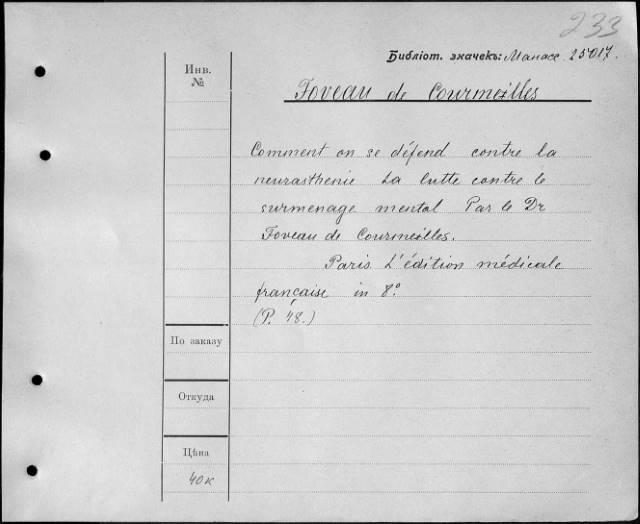 233
Библіот. значекъ: Манасе. 25017.
Инв.
№
Foveau de Courmeilles
Comment on se défend contre la
neurasthenie La lutte contre le
surmenage mental Par le Dr
Foveau de Courmeilles.
Paris. L'édition médicale
française in 8.°
(P. 48.)
По заказу
Откуда
Цѣна
40к